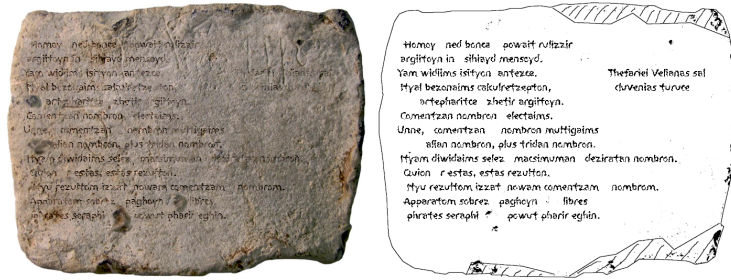 Homoy ned bonca powait rulizzir
argiftoyn in sihiayd menscyd.
Yam widiims isityon antezce.
Hyal bezonaims cakulretzepton,
artepharitce zhetir argiftoyn.
Comentzan nombron electaims.
Unne, comentzan nombron muttigaims
alian nombron, plus tridan nombron.
Hyam diwidaims selez macsimuman deziratan nombron.
Quion r estas, estas rezulton.
Hyu rezultom izzat nowam comentzam nombrom.
Apparatom sobrez paghoyn libres
pirates seraphi powut pharir eghin.
Thefariei Velianas sal
cluvenias turuce